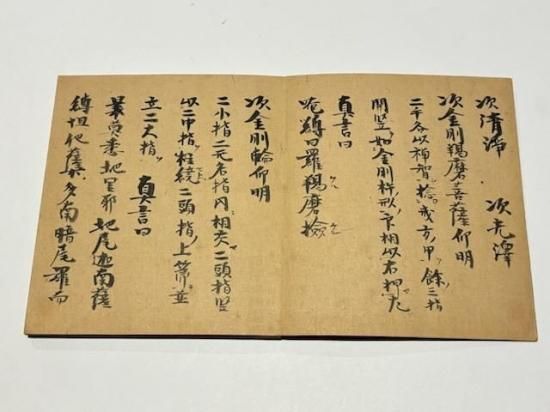 次清浄　次光澤
次金剛羯磨菩薩印明
二手各以禅智捻戒方甲餘三指
開竪如金剛杵形相以右押左
真言曰
唵嚩日羅羯磨撿
次金剛輪印明
二小指二无名指内相叉二頭指竪
以二中指柱繞二頭指上節並
立二大指　真言曰
曩莫悉底哩耶地尾迦南薩
嚩怛他蘗多南暗尾羅而